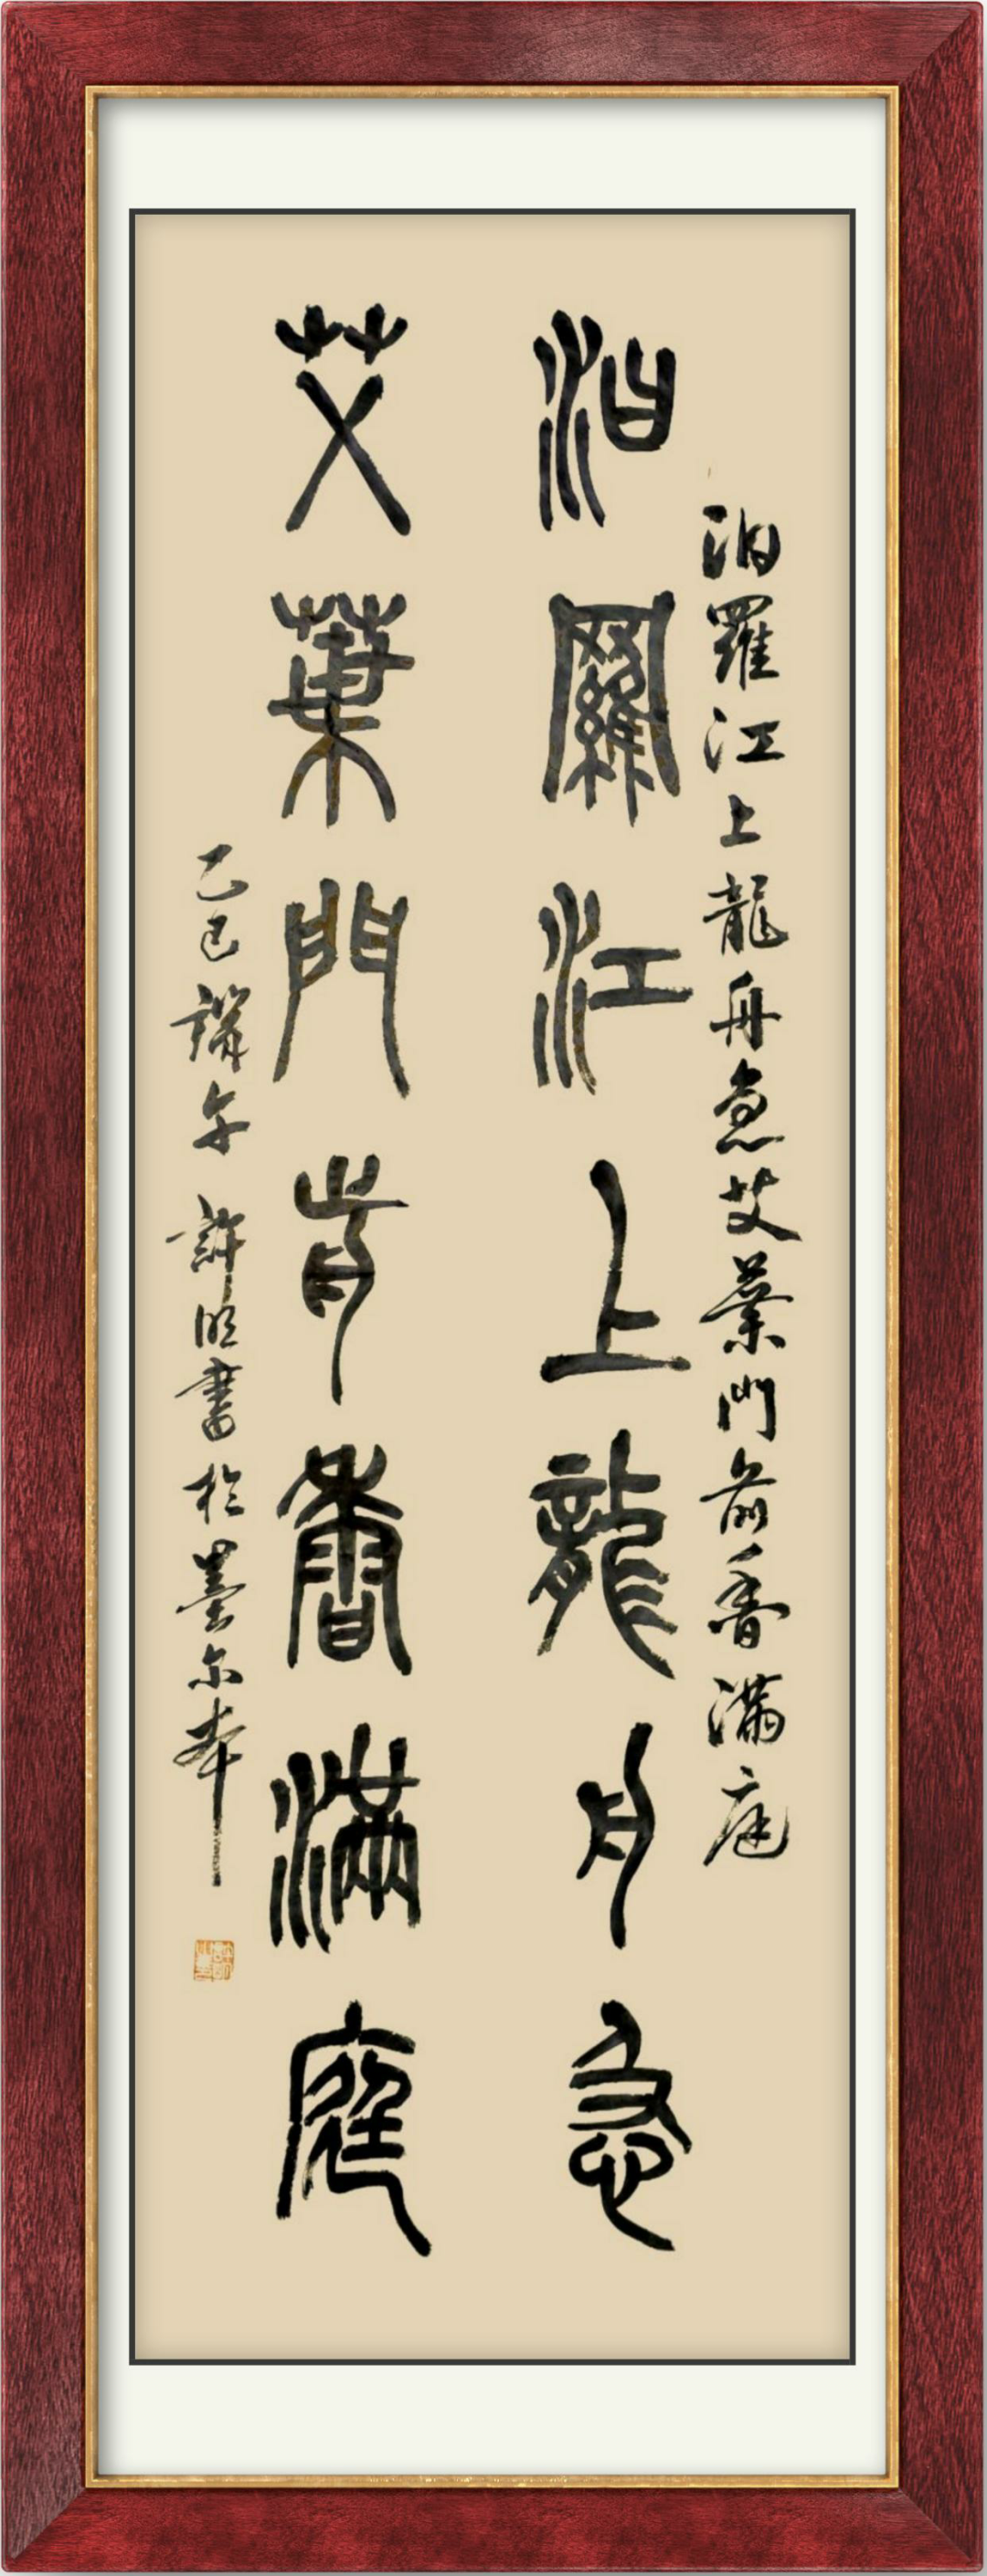 汨羅江上龍舟急艾葉門前香滿庭
汨羅江上龍舟急
艾葉門前香滿庭
乙巳端午 許明書於墨尔本